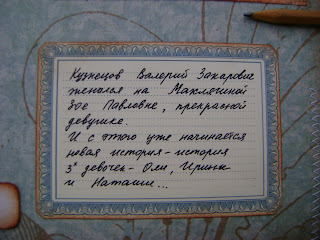 Кузнецов Валерий Захарович
женился на Махлягиной
Зое Павловне, прекрасной
девушке.
И с этого уже начинается
новая история - история
3х девочек - Оли, Ирины
и Наташи...